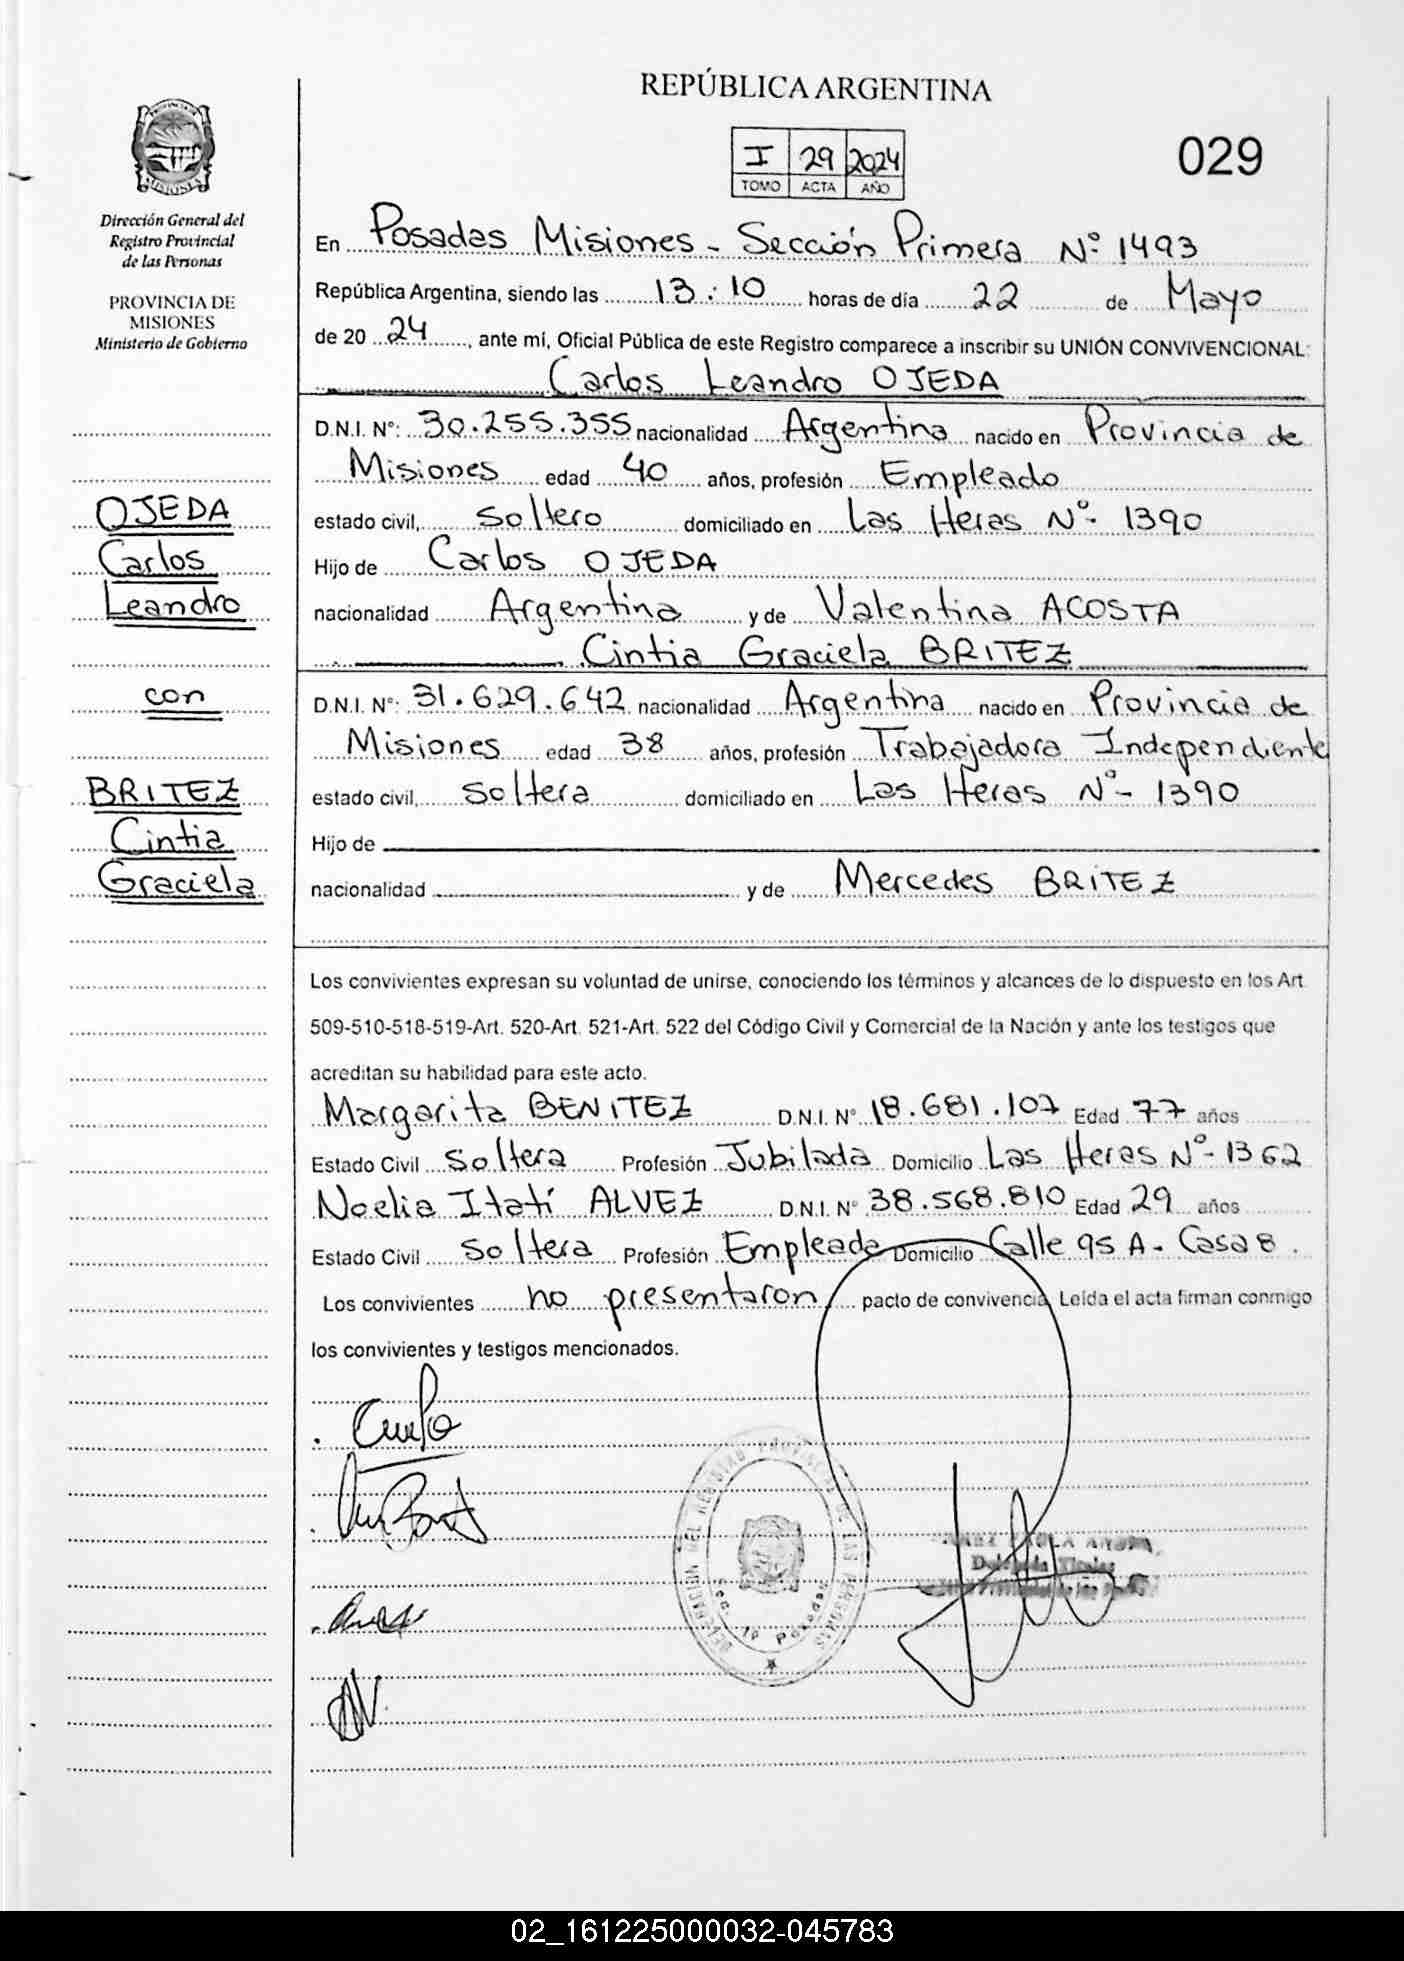 REPÚBLICA ARGENTINA
I 29 2024
TOMO ACTA AÑO
029
PROVINCIA DE
MISIONES
Dirección General del
Registro Provincial
de las Personas
PROVINCIA DE
MISIONES
Ministerio de Gobierno
En Posadas Misiones - Sección Primera Nº 1493
República Argentina, siendo las 13:10 horas de día 22 de Mayo
de 20 24, ante mí, Oficial Pública de este Registro comparece a inscribir su UNIÓN CONVIVENCIONAL:
Carlos Leandro OJEDA
D.N.I. Nº: 30.255.355 nacionalidad Argentina nacido en Provincia de
Misiones edad 40 años, profesión Empleado
estado civil, soltero domiciliado en Las Heras Nº- 1390
Hijo de Carlos OJEDA
nacionalidad Argentina y de Valentina ACOSTA
Cintia Graciela BRITEZ
D.N.I. Nº: 31.629.642 nacionalidad Argentina nacido en Provincia de
Misiones edad 38 años, profesión Trabajadora Independiente
estado civil, soltera domiciliado en Las Heras Nº- 1390
Hijo de
nacionalidad y de Mercedes BRITEZ
OJEDA
Carlos
Leandro
con
BRITEZ
Cintia
Graciela
Los convivientes expresan su voluntad de unirse, conociendo los términos y alcances de lo dispuesto en los Art.
509-510-518-519-Art. 520-Art. 521-Art. 522 del Código Civil y Comercial de la Nación y ante los testigos que
acreditan su habilidad para este acto.
Margarita BENITEZ D.N.I. Nº 18.681.107 Edad 77 años
Estado Civil Soltera Profesión Jubilada Domicilio Las Heras Nº- 1362
Noelia Itatí ALVEZ D.N.I. Nº 38.568.810 Edad 29 años
Estado Civil Soltera Profesión Empleada Domicilio Calle 95 A - Casa 8.
Los convivientes no presentaron pacto de convivencia. Leída el acta firman conmigo
los convivientes y testigos mencionados.
DELEGACION DEL REGISTRO PROVINCIAL DE LAS PERSONAS
Sec. 1ª Posadas
02_161225000032-045783